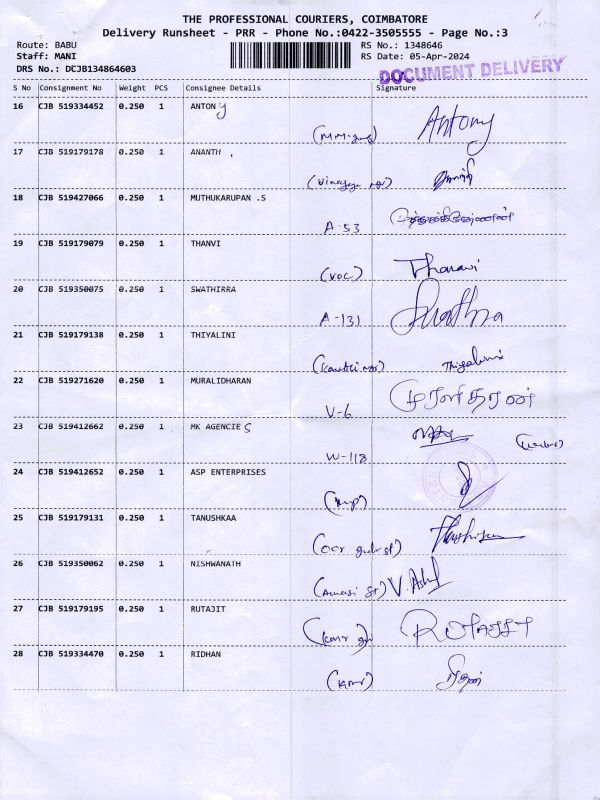 THE PROFESSIONAL COURIERS, COIMBATORE
Delivery Runsheet - PRR - Phone No.:0422-3505555 - Page No.:3
Route: BABU RS No.: 1348646
Staff: MANI RS Date: 05-Apr-2024
DRS No.: DCJB134864603 DOCUMENT DELIVERY
S No Consignment No Weight PCS Consignee Details Signature
16 CJB 519334452 0.250 1 ANTONY Antony
17 CJB 519179178 0.250 1 ANANTH
18 CJB 519427066 0.250 1 MUTHUKARUPAN .S
A-53
19 CJB 519179079 0.250 1 THANVI
(VOC)
20 CJB 519350075 0.250 1 SWATHIRRA
A-131
21 CJB 519179138 0.250 1 THIYALINI
22 CJB 519271620 0.250 1 MURALIDHARAN முரளிதரன்
V-6
23 CJB 519412662 0.250 1 MK AGENCIES
W-118
24 CJB 519412652 0.250 1 ASP ENTERPRISES
25 CJB 519179131 0.250 1 TANUSHKAA
26 CJB 519350062 0.250 1 NISHWANATH
27 CJB 519179195 0.250 1 RUTAJIT
28 CJB 519334470 0.250 1 RIDHAN ரிதன்